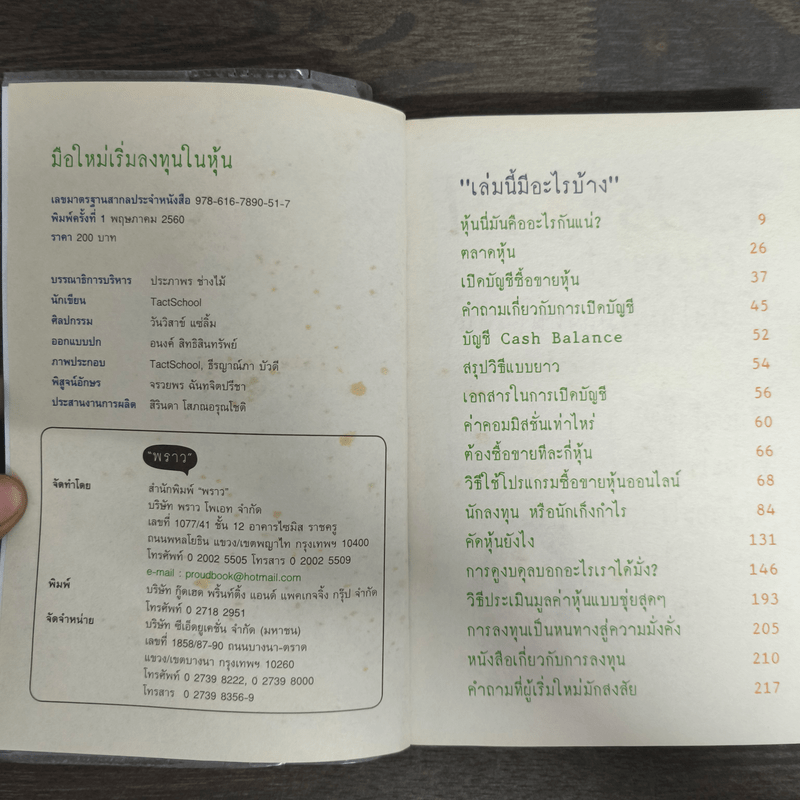 มือใหม่เริ่มลงทุนในหุ้น
เลขมาตรฐานสากลประจำหนังสือ 978-616-7890-51-7
พิมพ์ครั้งที่ 1 พฤษภาคม 2560
ราคา 200 บาท
บรรณาธิการบริหาร ประภาพร ช่างไม้
นักเขียน TactSchool
ศิลปกรรม วันวิสาข์ แซ่ลิ้ม
ออกแบบปก อนงค์ สิทธิสินทรัพย์
ภาพประกอบ TactSchool, ธีรญาณ์ภา บัวดี
พิสูจน์อักษร จรวยพร ฉันทจิตปรีชา
ประสานงานการผลิต สิรินดา โสภณอรุณโชติ
"พราว"
จัดทำโดย สำนักพิมพ์ "พราว"
บริษัท พราว โพเอท จำกัด
เลขที่ 1077/41 ชั้น 12 อาคารไซมิส ราชครู
ถนนพหลโยธิน แขวง/เขตพญาไท กรุงเทพฯ 10400
โทรศัพท์ 0 2002 5505 โทรสาร 0 2002 5509
e-mail : proudbook@hotmail.com
พิมพ์ บริษัท กู๊ดเฮด พริ้นท์ติ้ง แอนด์ แพคเกจจิ้ง กรุ๊ป จำกัด
โทรศัพท์ 0 2718 2951
จัดจำหน่าย บริษัท ซีเอ็ดยูเคชั่น จำกัด (มหาชน)
เลขที่ 1858/87-90 ถนนบางนา-ตราด
แขวง/เขตบางนา กรุงเทพฯ 10260
โทรศัพท์ 0 2739 8222, 0 2739 8000
โทรสาร 0 2739 8356-9
"เล่มนี้มีอะไรบ้าง"
หุ้นนี่มันคืออะไรกันแน่? 9
ตลาดหุ้น 26
เปิดบัญชีซื้อขายหุ้น 37
คำถามเกี่ยวกับการเปิดบัญชี 45
บัญชี Cash Balance 52
สรุปวิธีแบบยาว 54
เอกสารในการเปิดบัญชี 56
ค่าคอมมิสชั่นเท่าไหร่ 60
ต้องซื้อขายทีละกี่หุ้น 66
วิธีใช้โปรแกรมซื้อขายหุ้นออนไลน์ 68
นักลงทุน หรือนักเก็งกำไร 84
คัดหุ้นยังไง 131
การดูงบดุลบอกอะไรเราได้มั่ง? 146
วิธีประเมินมูลค่าหุ้นแบบซุ่ยสุดๆ 193
การลงทุนเป็นหนทางสู่ความมั่งคั่ง 205
หนังสือเกี่ยวกับการลงทุน 210
คำถามที่ผู้เริ่มใหม่มักสงสัย 217